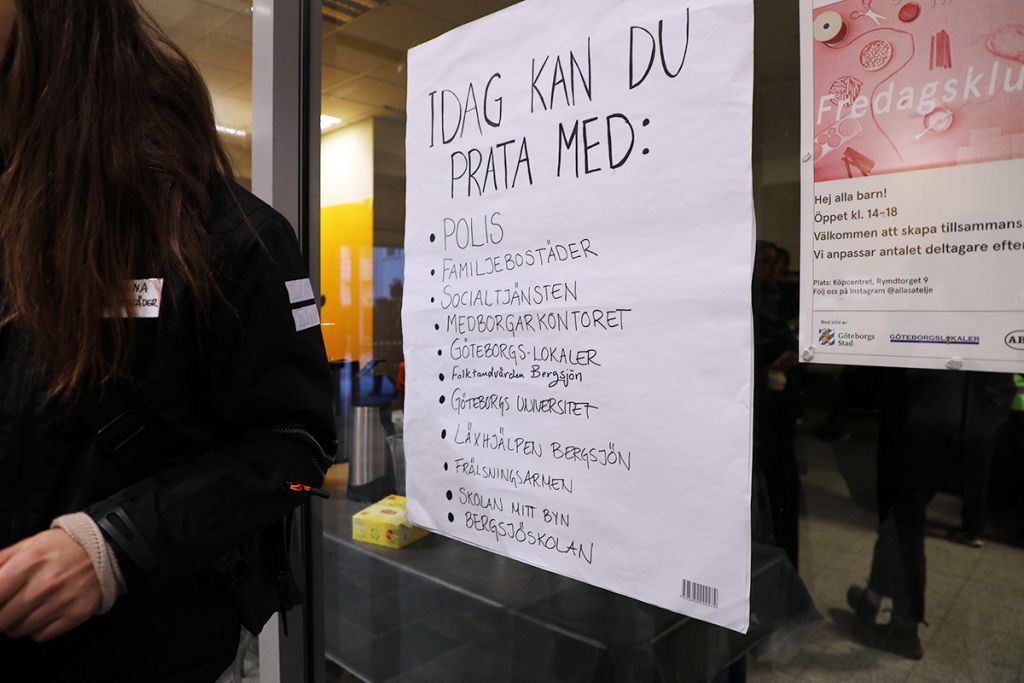 IDAG KAN DU
PRATA MED:
• POLIS
• FAMILJEBOSTÄDER
• SOCIALTJÄNSTEN
• MEDBORGARKONTORET
• GÖTEBORGS-LOKALER
• Folktandvården Bergsjön
• GÖTEBORGS UNIVERSITET
• LÄXHJÄLPEN BERGSJÖN
• FRÄLSNINGSARMEN
• SKOLAN MITT BYN
• BERGSJÖSKOLAN
Fredagsklu
Hej alla barn!
Öppet kl. 14-18
Välkommen att skapa tillsammans
Vi anpassar antalet deltagare efter
Plats: Köpcentret, Rymdtorget 9
Följ oss på Instagram @allasatelje
Med stöd av
Göteborgs
Stad
GÖTEBORGSLOKALER